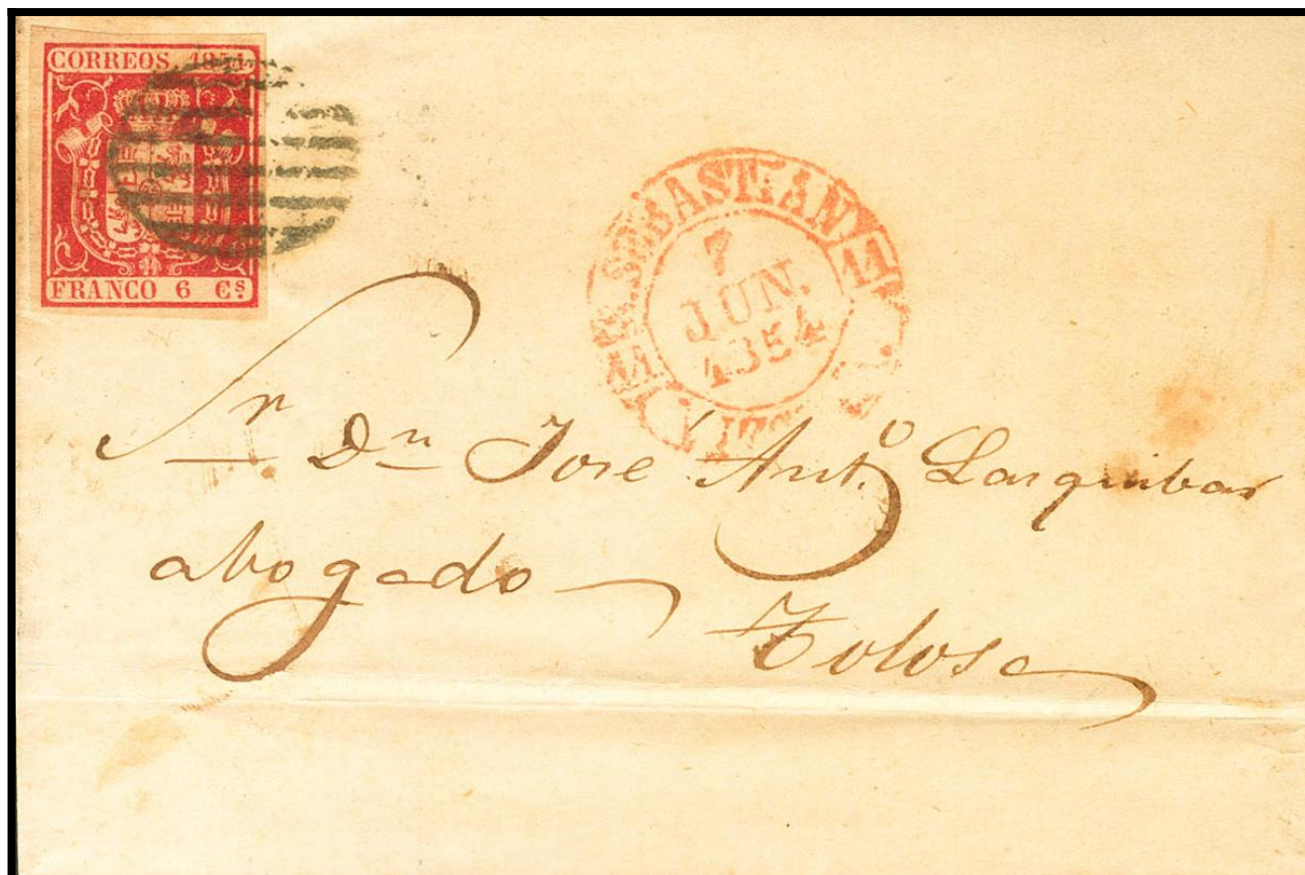 CORREOS. 1854.
FRANCO 6 Cs.
S.SEBASTIAN
11 11
7
JUN.
1854
Sr Dn José Ant.o Larquibar
abogado
Tolosa